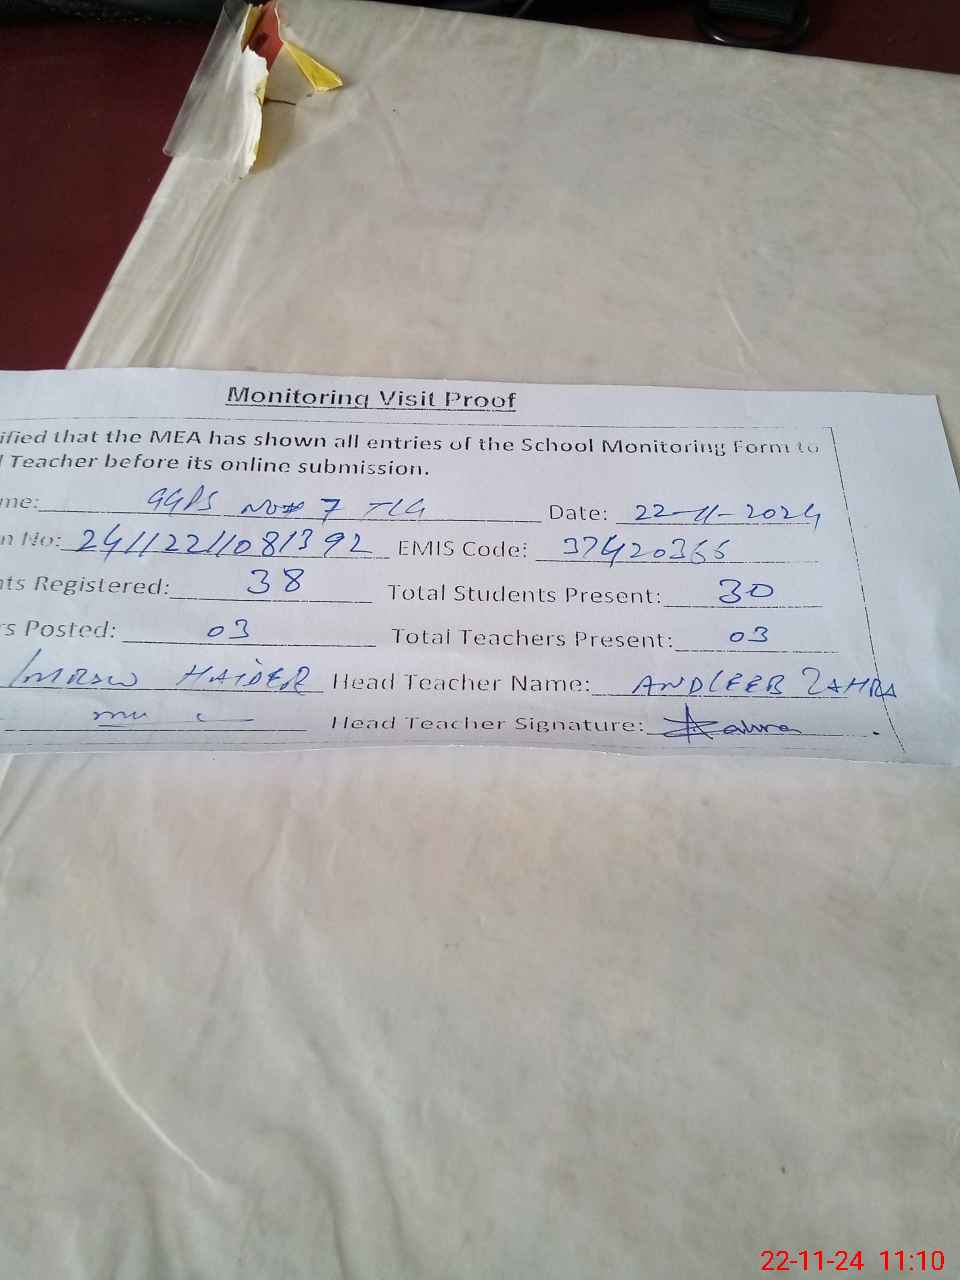 Monitoring Visit Proof
ified that the MEA has shown all entries of the School Monitoring Form to
l Teacher before its online submission.
me: GGPS No# 7 TLG Date: 22-11-2024
n No: 24112211081392 EMIS Code: 37420366
nts Registered: 38 Total Students Present: 30
rs Posted: 03 Total Teachers Present: 03
IMRAN HAIDER Head Teacher Name: ANDLEEB ZAHRA
Head Teacher Signature: Zahra
22-11-24 11:10